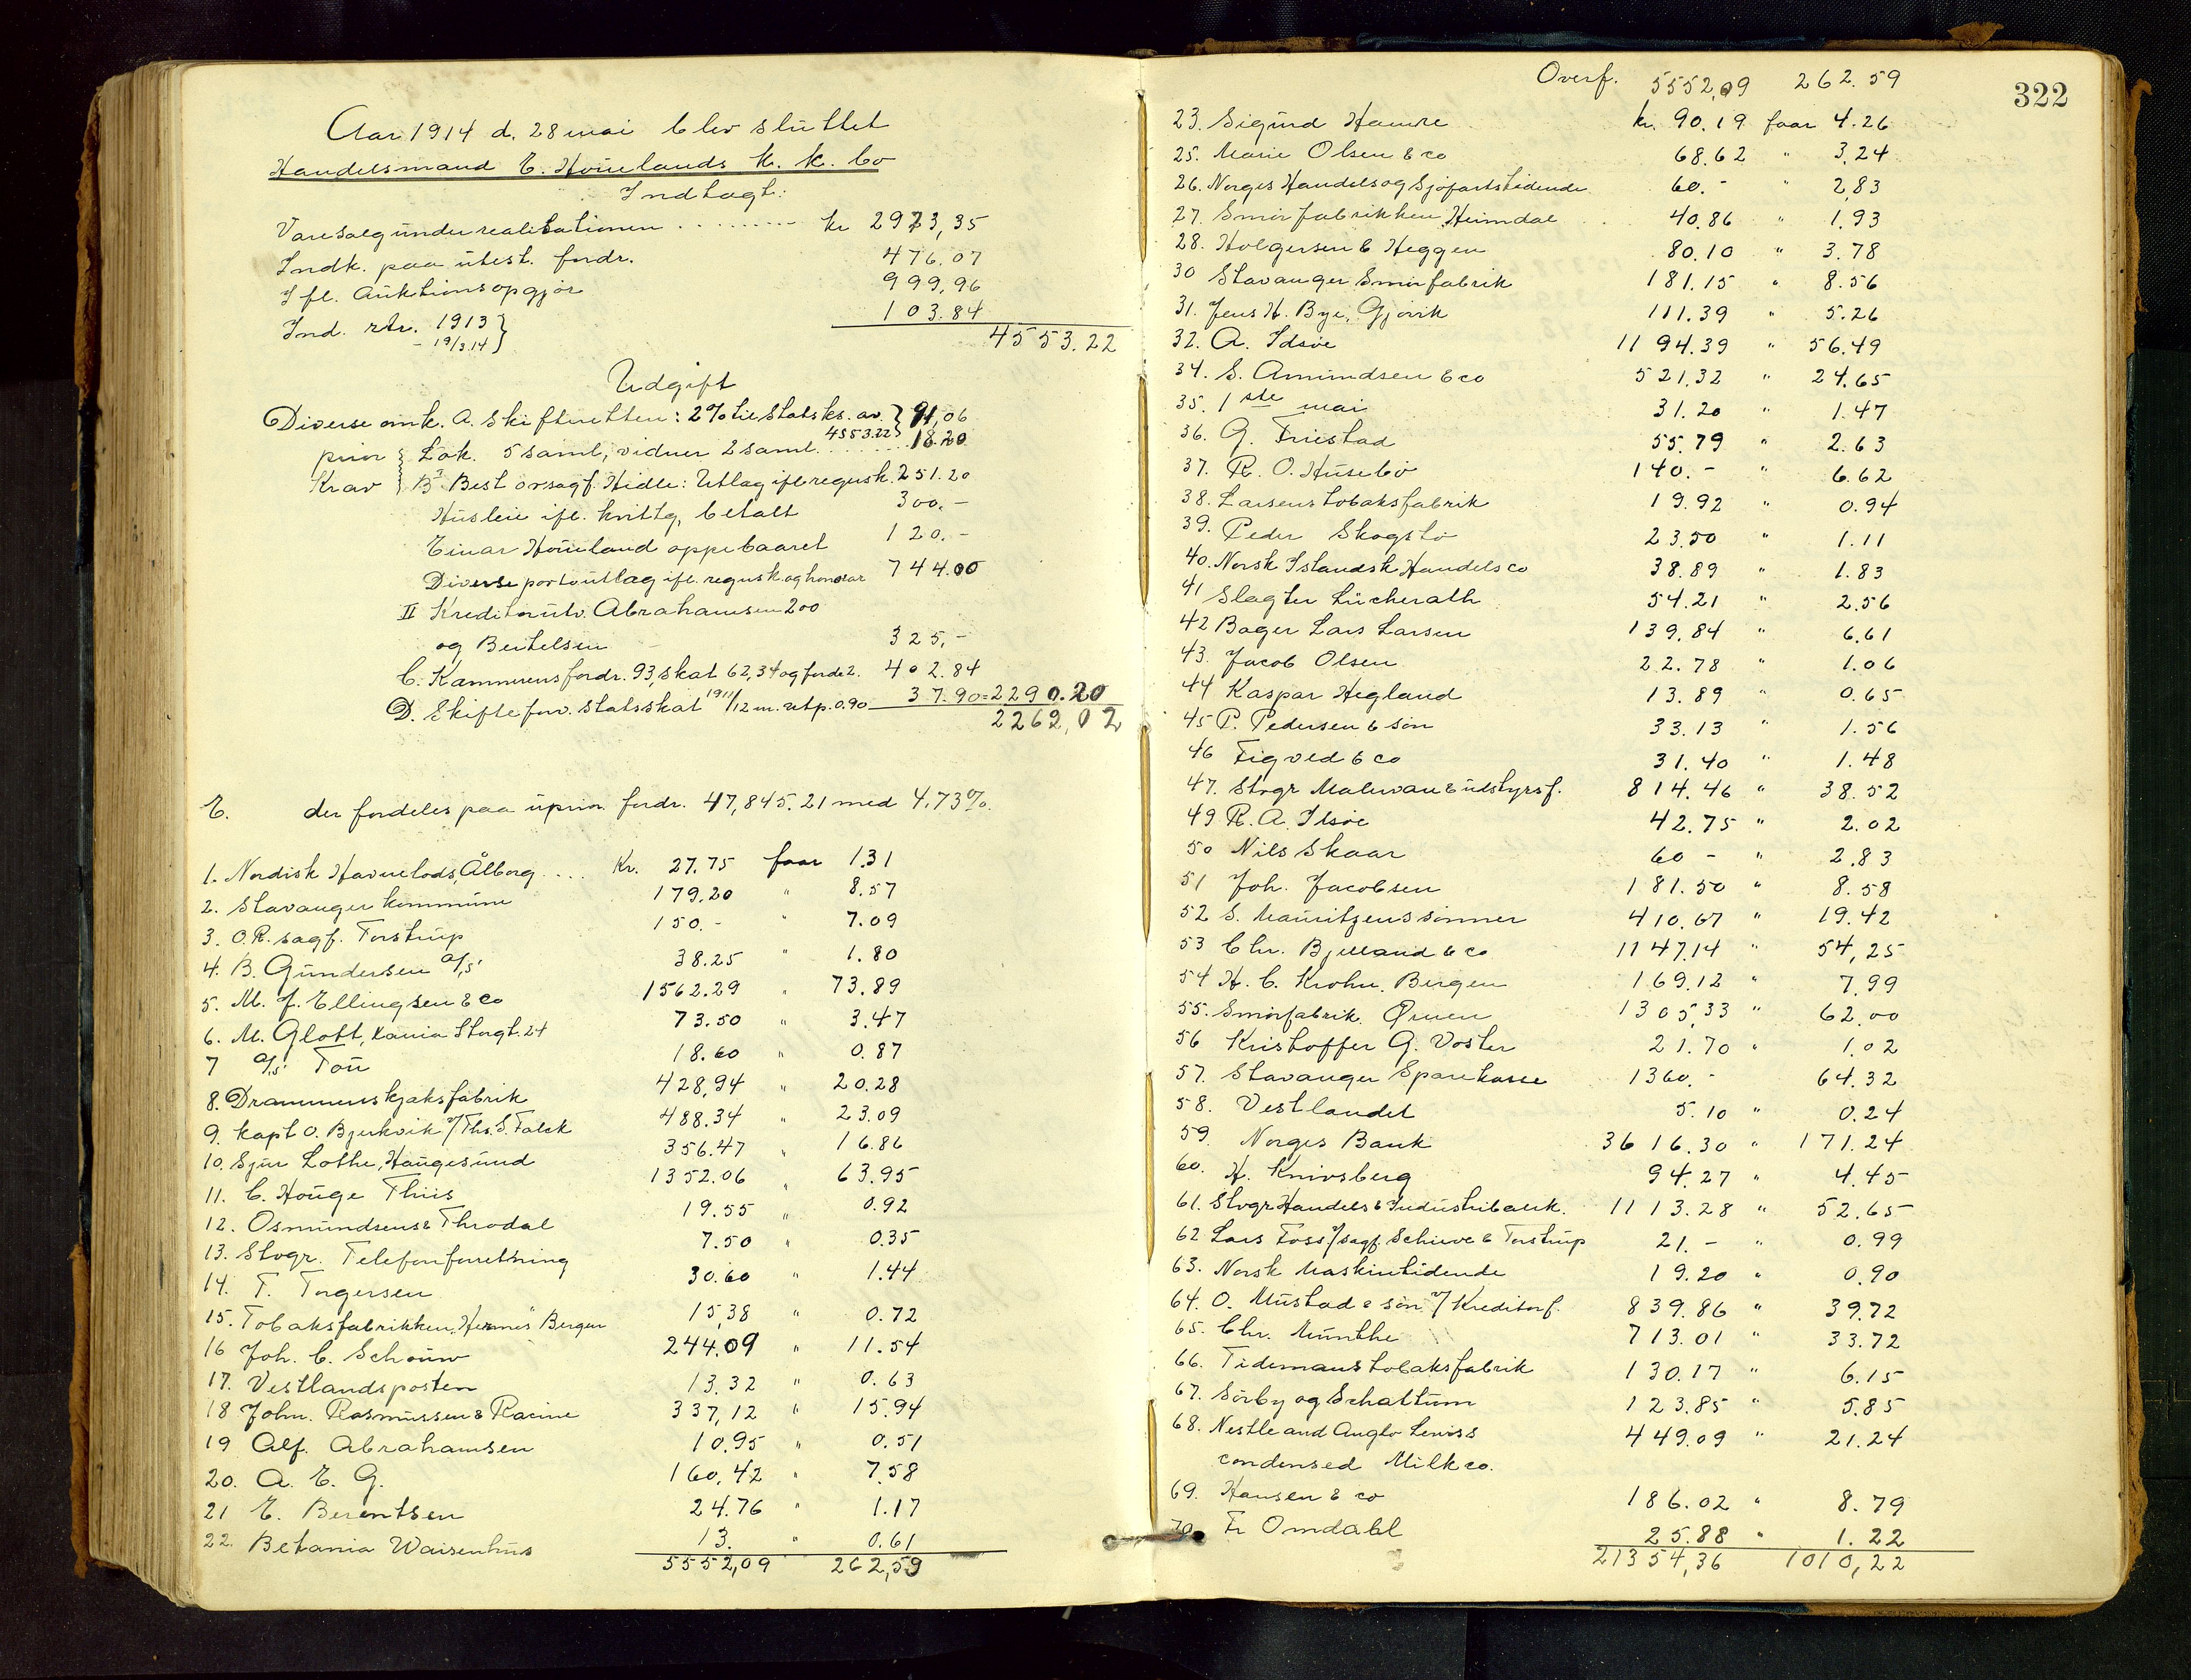 Aar 1914 d. 28 mai blev sluttet
Handelsmand E. Houelands k. k. bo
Indtagt:
Varesalg under realisationen ......... kr 2973,35
Indk. paa utest. fordr. 476.07
Ifl. Auktionsopgjör 999,96
Ind. rtr. 1913 103.84
- 19/3.14
4553.22
Udgift
Diverse omk. A. Skifteretten: 2% til Statsks. av 91,06
4553.22
prior Lok. 5 saml, vidner 2 saml. ...... 18.20
Krav B I Best. orsagf. Hidle: Utlag ifl. regnsk. 251.20
Husleie ifl. kvittg, betalt 300.-
Einar Houeland oppebaaret 120.-
Diverse portoutlag ifl. regnsk. og honorar 744.00
II Kreditorutv. Abrahamsen 200
og Bertelsen 325,-
C. Kæmnerens fordr. 93, skat 62,34 og forde 2. 402.84
D. Skifteforv. Statsskat 1911/12 m. utp. 0.90 37.90 = 2290.20
2262,02
E. der fordeles paa uprior. fordr. 47,845.21 med 4,73%.
1. Nordisk Havnelods, Ålborg .... Kr. 27.75 faar 1.31
2. Stavanger kommune 179,20 " 8.57
3. O.R. sagf. Torstrup 150.- " 7.09
4. B. Gundersen A/S 38.25 " 1.80
5. M. J. Ellingsen & Co 1562.29 " 73.89
6. M. Glott, Kania Storgt. 24 73.50 " 3.47
7 A/S Tou 18.60 " 0.87
8. Drammens kjæksfabrik 428,94 " 20.28
9. Kapt O. Bjerkvik / Ths. S. Falck 488.34 " 23.09
10. Sjur Lothe, Haugesund 356.47 " 16.86
11. C. Houge Thiis 1352.06 " 63.95
12. Osmundsen & Throdal 19.55 " 0.92
13. Stvgr. Telefonforretning 7.50 " 0.35
14. T. Torgersen 30.60 " 1.44
15. Tobaksfabrikken "Hermes" Bergen 15,38 " 0.72
16 Joh. C. Schouw 244.09 " 11.54
17. Vestlandsposten 13.32 " 0.63
18 John. Rasmussen & Racine 337,12 " 15.94
19 Alf. Abrahamsen 10.95 " 0.51
20. A. E. G. 160,42 " 7.58
21 E. Berentsen 24.76 " 1.17
22. Betania Waisenhus 13. " 0.61
5552,09 262,59
322
Overf. 5552,09 262.59
23. Sigurd Hamre kr. 90.19 faar 4.26
25. Marie Olsen & co 68.62 " 3,24
26. Norges Handels og Sjøfartstidende 60.- " 2,83
27. Smörfabrikken Heimdal 40.86 " 1.93
28. Holgersen & Heggen 80.10 " 3.78
30 Stavanger Smörfabrik 181.15 " 8.56
31. Jens H. Bye, Gjövik 111.39 " 5.26
32. A. Idsöe 1194.39 " 56.49
34. S. Amundsen & co 521.32 " 24.65
35. 1ste mai 31.20 " 1.47
36. G. Friestad 55.79 " 2.63
37. R. O. Husebö 140.- " 6.62
38. Larsens tobaksfabrik 19.92 " 0.94
39. Peder Skogstö 23.50 " 1.11
40. Norsk Islandsk Handels co 38.89 " 1.83
41 Slagter Lücherath 54.21 " 2.56
42 Bager Lars Larsen 139.84 " 6.61
43. Jacob Olsen 22.78 " 1.06
44 Kaspar Hegland 13.89 " 0.65
45 P. Pedersen & sön 33.13 " 1.56
46 Figved & co 31.40 " 1.48
47. Stvgr Malervare & udstyrsf. 814.46 " 38.52
49 R. A. Ilsöe 42.75 " 2.02
50 Nils Skaar 60 - " 2.83
51 Joh. Jacobsen 181.50 " 8.58
52 S. Mauritzens sönner 410.67 " 19.42
53 Chr. Bjelland & co 1147.14 " 54,25
54 H. C. Krohn. Bergen 169.12 " 7.99
55. Smörfabrik. Ørnen 1305,33 " 62.00
56 Kristoffer G. Voster 21.70 " 1.02
57. Stavanger Sparekasse 1360.- 64.32
58. Vestlandet 5.10 " 0.24
59. Norges Bank 3616.30 " 171.24
60. H. Knivsberg 94.27 " 4.45
61. Stvgr Handels & Industribank. 1113.28 " 52.65
62 Lars Foss / sagf. Schieve & Torstrup 21.- " 0.99
63. Norsk Maskintidende 19.20 " 0.90
64. O. Mustad & sön / Kreditorf. 839.86 " 39.72
65. Chr. Munthe 713.01 " 33.72
66. Tidemans tobaksfabrik 130.17 " 6.15
67. Sörby og Schattum 123.85 " 5.85
68. Nestle and Anglo Lewiss 449.09 " 21.24
condensed Milk co.
69. Hansen & co 186.02 " 8.79
70. Fr Omdahl 25.88 " 1.22
21354,36 1010,22